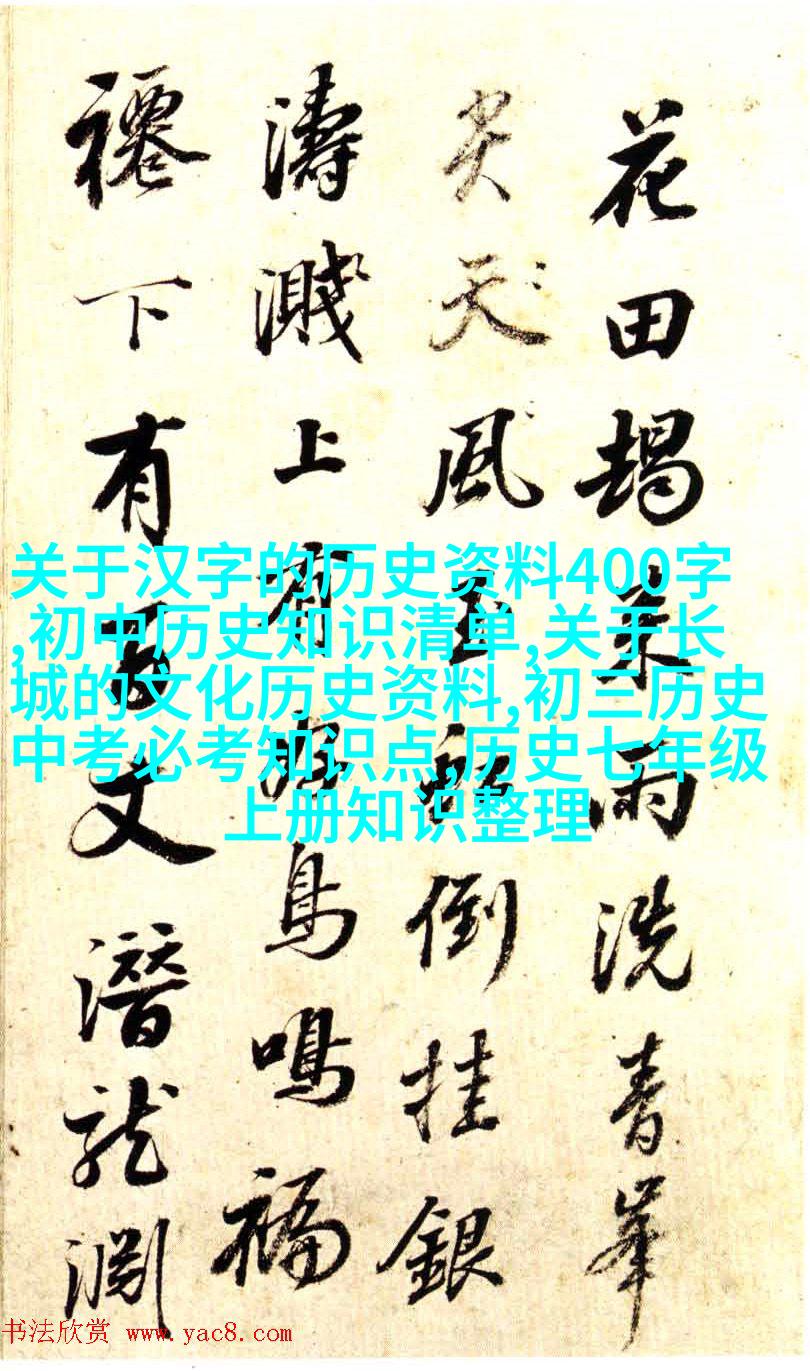 花田来雨洗青峯
天風玉倒挂銀
濤濺上有鳥鳴福
下有丈潛龍淵
关于汉字的历史资料400字
,初中历史知识清单,关于长
城的文化历史资料,初三历史
中考必考知识点,历史七年级
上册知识整理
书法欣赏 www.yac8.com